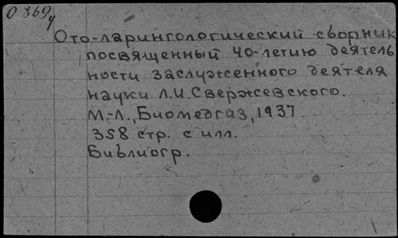 О 369
у
Ото-ларингологический сборник
посвященный 40-летию деятель
ности заслуженного деятеля
науки Л.И.Свержевского.
М.-Л., Биомедгиз, 1937
358 стр. с илл.
Библиогр.